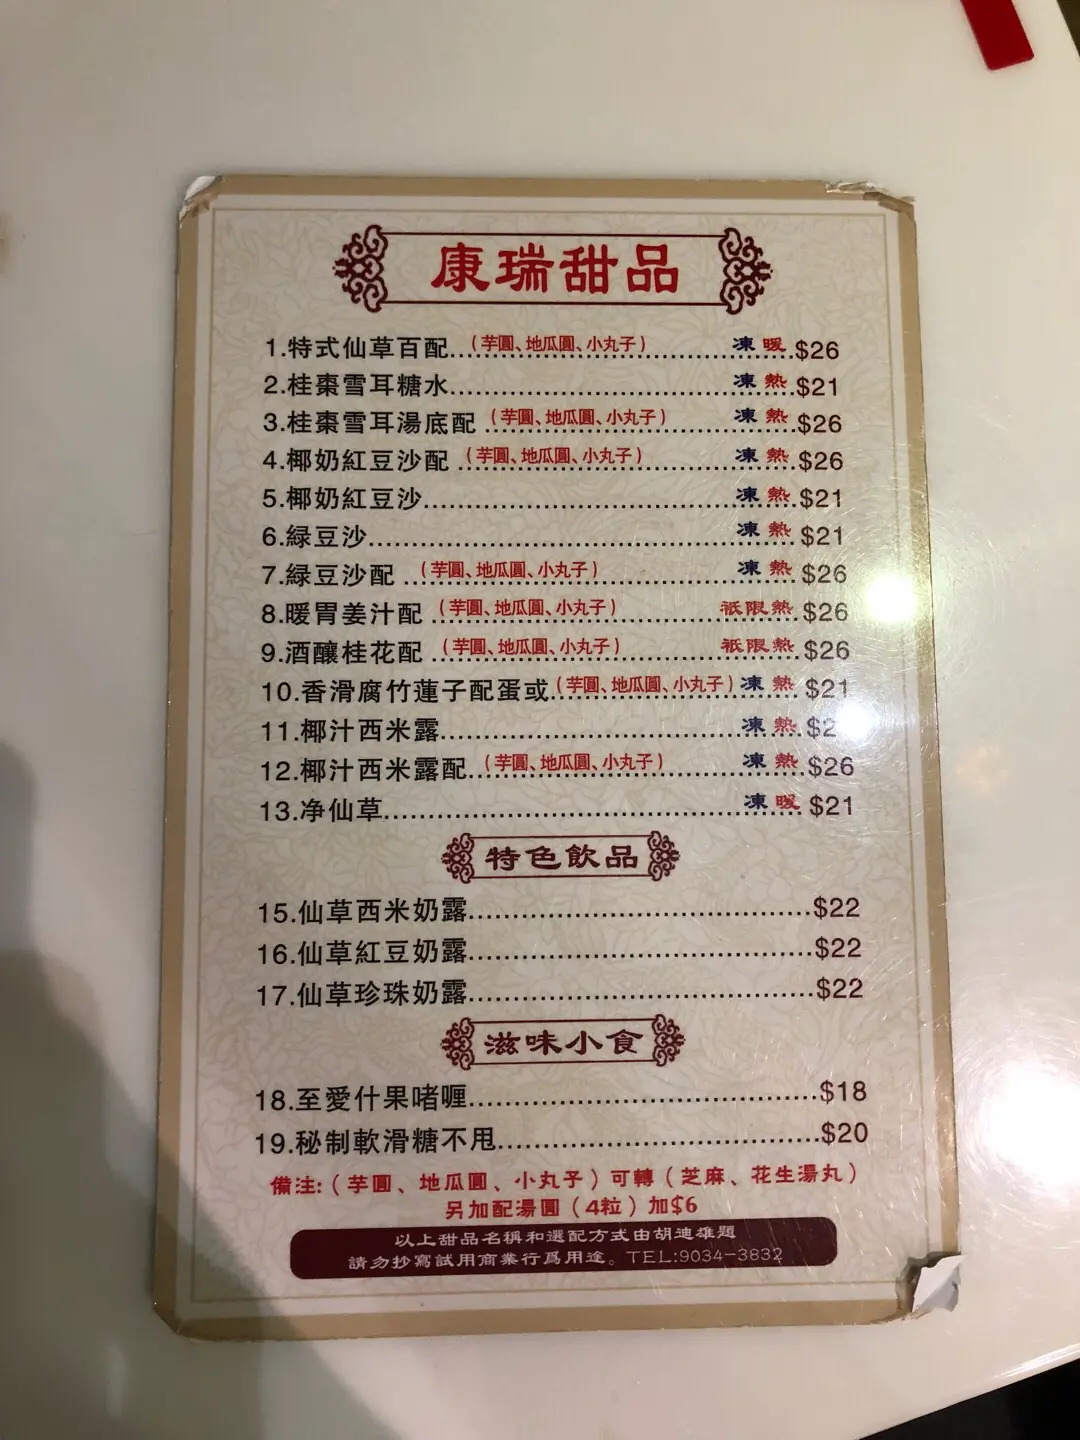 康瑞甜品
1.特式仙草百配...(芋圓、地瓜圓、小丸子) 凍 暖 $26
2.桂棗雪耳糖水 凍 熱 $21
3.桂棗雪耳湯底配 (芋圓、地瓜圓、小丸子) 凍 熱 $26
4.椰奶紅豆沙配 (芋圓、地瓜圓、小丸子) 凍 熱 $26
5.椰奶紅豆沙 凍 熱 $21
6.緑豆沙 凍 熱 $21
7.緑豆沙配 (芋圓、地瓜圓、小丸子) 凍 熱 $26
8.暖胃姜汁配 (芋圓、地瓜圓、小丸子) 祇限熱 $26
9.酒釀桂花配 (芋圓、地瓜圓、小丸子) 祇限熱 $26
10.香滑腐竹蓮子配蛋或 (芋圓、地瓜圓、小丸子) 凍 熱 $21
11.椰汁西米露 凍 熱 $2
12.椰汁西米露配 (芋圓、地瓜圓、小丸子) 凍 熱 $26
13.净仙草 凍 暖 $21
特色飲品
15.仙草西米奶露 $22
16.仙草紅豆奶露 $22
17.仙草珍珠奶露 $22
滋味小食
18.至愛什果啫喱 $18
19.秘制軟滑糖不甩 $20
備注:(芋圓、地瓜圓、小丸子)可轉(芝麻、花生湯丸)
另加配湯圓(4粒)加$6
以上甜品名稱和選配方式由胡迪雄題
請勿抄寫試用商業行爲用途。TEL:9034-3832